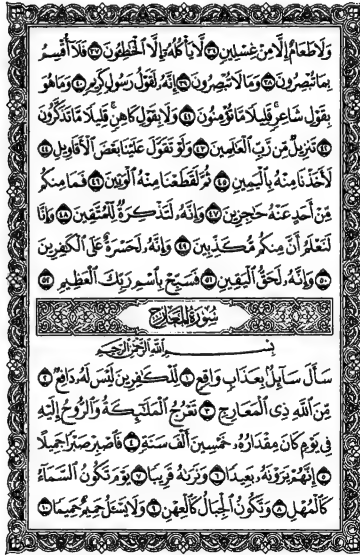 وَلَا طَعَامٌ إِلَّا مِنْ غِسْلِينٍ ٣٦ لَّا يَأْكُلُهُ إِلَّا الْخَاطِئُونَ ٣٧ فَلَا أُقْسِمُ
بِمَا تُبْصِرُونَ ٣٨ وَمَا لَا تُبْصِرُونَ ٣٩ إِنَّهُ لَقَوْلُ رَسُولٍ كَرِيمٍ ٤٠ وَمَا هُوَ
بِقَوْلِ شَاعِرٍ قَلِيلًا مَّا تُؤْمِنُونَ ٤١ وَلَا بِقَوْلِ كَاهِنٍ قَلِيلًا مَّا تَذَكَّرُونَ
٤٢ تَنزِيلٌ مِّن رَّبِّ الْعَالَمِينَ ٤٣ وَلَوْ تَقَوَّلَ عَلَيْنَا بَعْضَ الْأَقَاوِيلِ ٤٤
لَأَخَذْنَا مِنْهُ بِالْيَمِينِ ٤٥ ثُمَّ لَقَطَعْنَا مِنْهُ الْوَتِينَ ٤٦ فَمَا مِنكُم
مِّنْ أَحَدٍ عَنْهُ حَاجِزِينَ ٤٧ وَإِنَّهُ لَتَذْكِرَةٌ لِّلْمُتَّقِينَ ٤٨ وَإِنَّا
لَنَعْلَمُ أَنَّ مِنكُم مُّكَذِّبِينَ ٤٩ وَإِنَّهُ لَحَسْرَةٌ عَلَى الْكَافِرِينَ
٥٠ وَإِنَّهُ لَحَقُّ الْيَقِينِ ٥١ فَسَبِّحْ بِاسْمِ رَبِّكَ الْعَظِيمِ ٥٢
سُورَةُ المَعَارِجِ
بِسْمِ اللَّهِ الرَّحْمَٰنِ الرَّحِيمِ
سَأَلَ سَائِلٌ بِعَذَابٍ وَاقِعٍ ١ لِّلْكَافِرِينَ لَيْسَ لَهُ دَافِعٌ ٢
مِّنَ اللَّهِ ذِي الْمَعَارِجِ ٣ تَعْرُجُ الْمَلَائِكَةُ وَالرُّوحُ إِلَيْهِ
فِي يَوْمٍ كَانَ مِقْدَارُهُ خَمْسِينَ أَلْفَ سَنَةٍ ٤ فَاصْبِرْ صَبْرًا جَمِيلًا
٥ إِنَّهُمْ يَرَوْنَهُ بَعِيدًا ٦ وَنَرَاهُ قَرِيبًا ٧ يَوْمَ تَكُونُ السَّمَاءُ
كَالْمُهْلِ ٨ وَتَكُونُ الْجِبَالُ كَالْعِهْنِ ٩ وَلَا يَسْأَلُ حَمِيمٌ حَمِيمًا ١٠